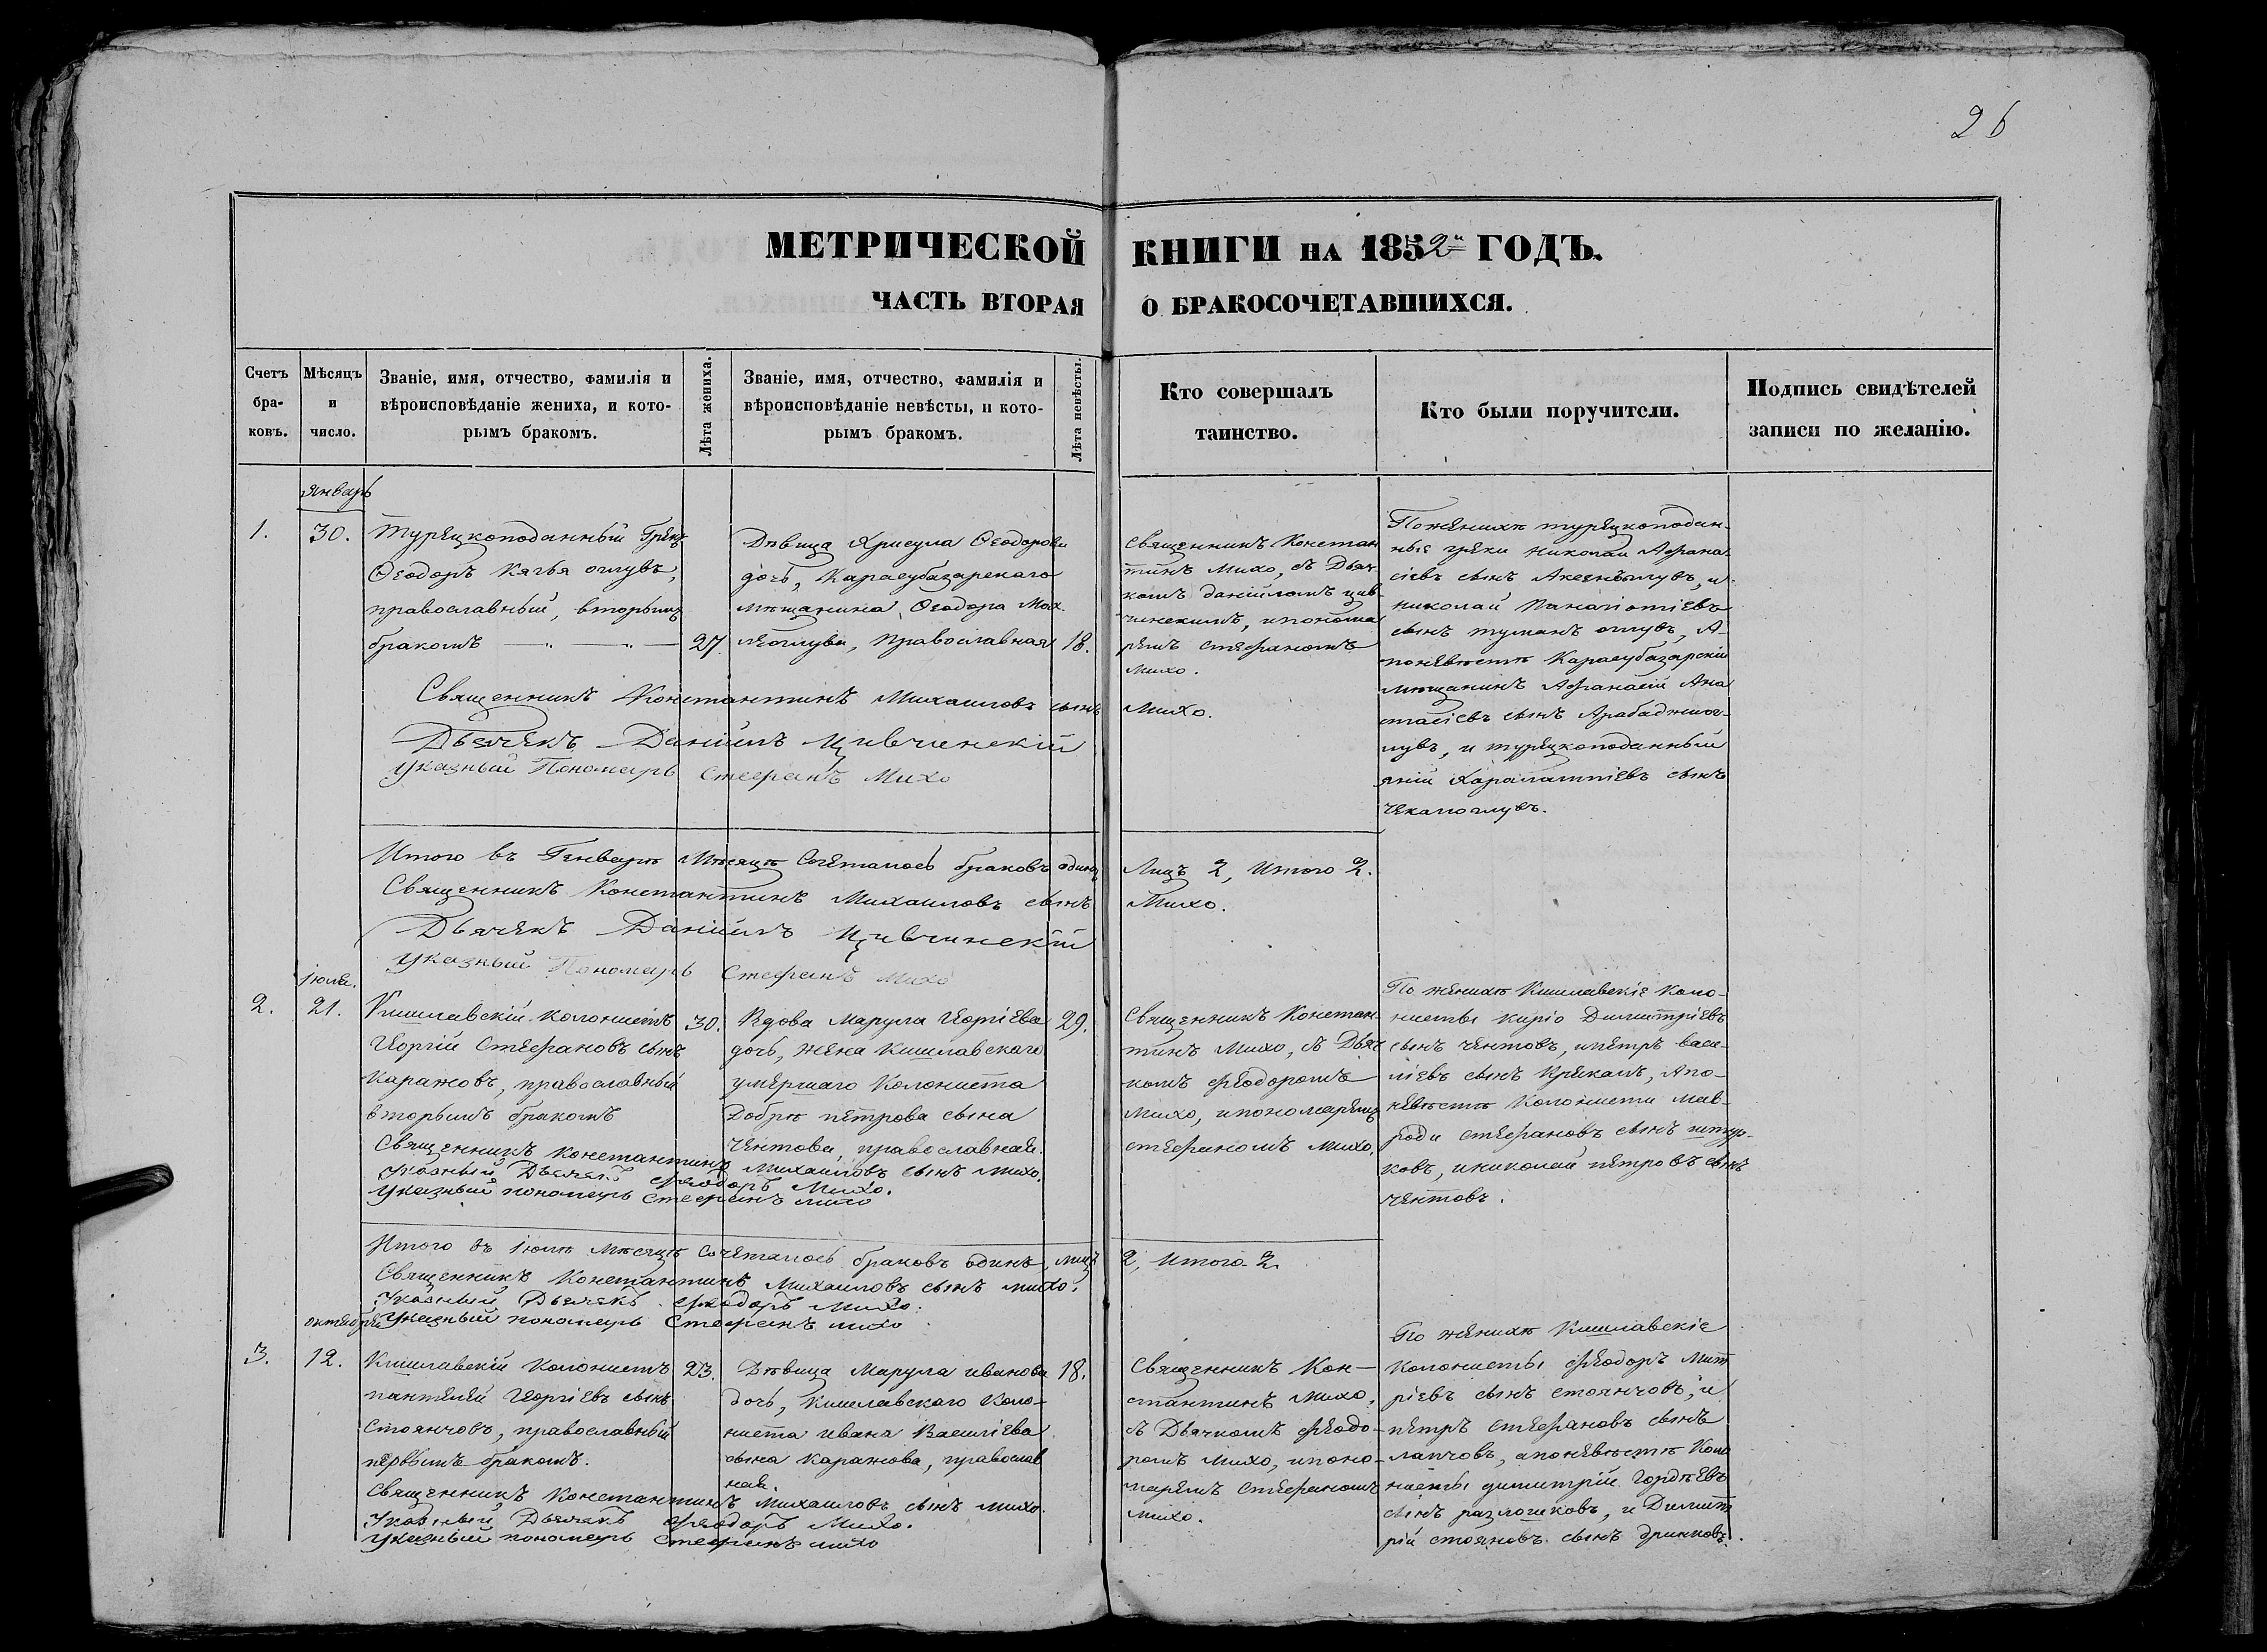 26
МЕТРИЧЕСКОЙ КНИГИ НА 1852й ГОДЪ.
ЧАСТЬ ВТОРАЯ О БРАКОСОЧЕТАВШИХСЯ.
Счетъ
бра-
ковъ.
Мѣсяцъ
и
число.
Званіе, имя, отчество, фамилія и
вѣроисповѣданіе жениха, и кото-
рымъ бракомъ.
Лѣта жениха.
Званіе, имя, отчество, фамилія и
вѣроисповѣданіе невѣсты, и кото-
рымъ бракомъ.
Лѣта невѣсты.
Кто совершалъ
таинство.
Кто были поручители.
Подпись свидѣтелей
записи по желанію.
январь
1.
30.
Турецкоподанный Грекъ
Ѳеодоръ Кячья оглувъ,
православный, вторымъ
бракомъ
27.
Дѣвица Хрисула Ѳеодорова
дочь, Карасубазарскаго
мѣщанина Ѳеодора
православная
18.
Священникъ Констан
тинъ Михо, съ Дьяч-
комъ Даніиломъ Цив-
чинскимъ, и понома
ремъ Стефаномъ
Михо.
По женихѣ турецкоподан-
ные греки Николай Афана-
сіевъ сынъ и
Николай Панаіотіевъ
сынъ туманъ оглувъ, А-
по невѣстѣ Карасубазарскій
мѣщанинъ Афанасій Ана
стасіевъ сынъ Арабаджиог-
лувъ, и турецкоподанный
Яній Харалампіевъ сынъ
Чекапоглувъ.
Священникъ Константинъ Михаиловъ сынъ Михо.
Дьячекъ Даніилъ Цивчинскій
Указный Пономарь Стефанъ Михо
Итого въ Генварѣ Мѣсяцѣ Сочеталось браковъ одинъ Лицъ 2, Итого 2.
Священникъ Константинъ Михаиловъ сынъ Михо.
Дьячекъ Даніилъ Цивчинскій
Указный Пономарь Стефанъ Михо
іюля.
2.
21.
Кишлавскій колонистъ
Георгій Стефановъ сынъ
Каражовъ, православный
вторымъ бракомъ
30.
Вдова Марула Георгіева
дочь, жена Кишлавскаго
умершаго Колониста
Добрѣ петрова сына
Чентова, православная.
29.
Священникъ Констан-
тинъ Михо, съ Дьяч
комъ Феодоромъ
Михо, и пономаремъ
Стефаномъ Михо.
По женихѣ Кишлавскіе коло-
нисты Киріо Димитріевъ
сынъ Чентовъ, и петръ васи-
ліевъ сынъ А по-
невѣстѣ Колонисти Мав-
роди Стефановъ сынъ
ковъ, и николай петровъ сынъ
Чентовъ.
Священникъ Константинъ Михаиловъ сынъ Михо.
Указный Дьячекъ Феодоръ Михо.
Указный пономарь Стефанъ михо
Итого въ іюлѣ мѣсяцѣ Сочеталось браковъ одинъ, лицъ 2, Итого 2.
Священникъ Константинъ Михаиловъ сынъ Михо.
Указный Дьячекъ Феодоръ Михо.
Указный пономарь Стефанъ михо
октября
3.
12.
Кишлавскій колонистъ
пантелей Георгіевъ сынъ
Стоянчовъ, православный
первымъ бракомъ.
23.
Дѣвица Марула иванова
дочь, Кишлавскаго коло-
ниста ивана Василіева
сына Каражова, православ
ная.
18.
Священникъ Кон-
стантинъ Михо,
съ Дьячкомъ Феодо-
ромъ Михо, и поно-
маремъ Стефаномъ
михо.
По женихѣ Кишлавскіе
колонисты Феодоръ Мит
ріевъ сынъ стоянчовъ, и
петръ Стефановъ сынъ
лапчовъ, а по невѣстѣ Коло
нисты димитрій Гордѣевъ
сынъ и Димит
рій стояновъ сынъ
Священникъ Константинъ Михаиловъ сынъ Михо.
Указный Дьячекъ Феодоръ Михо.
Указный пономарь Стефанъ михо